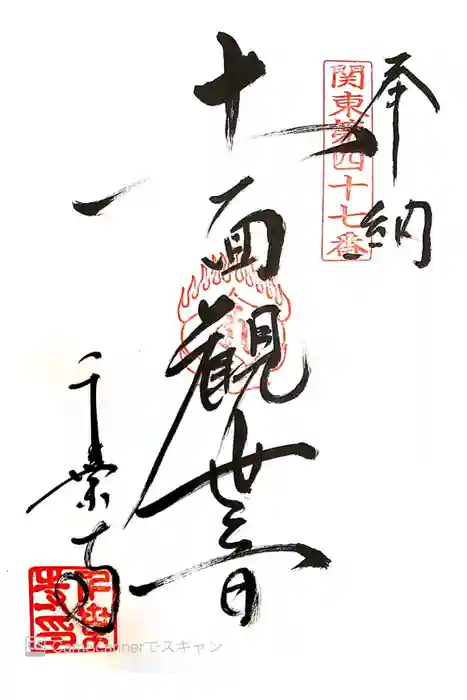 奉納
関東第四十七番
十一面觀世音
千葉寺
千葉寺印
CS CamScannerでスキャン